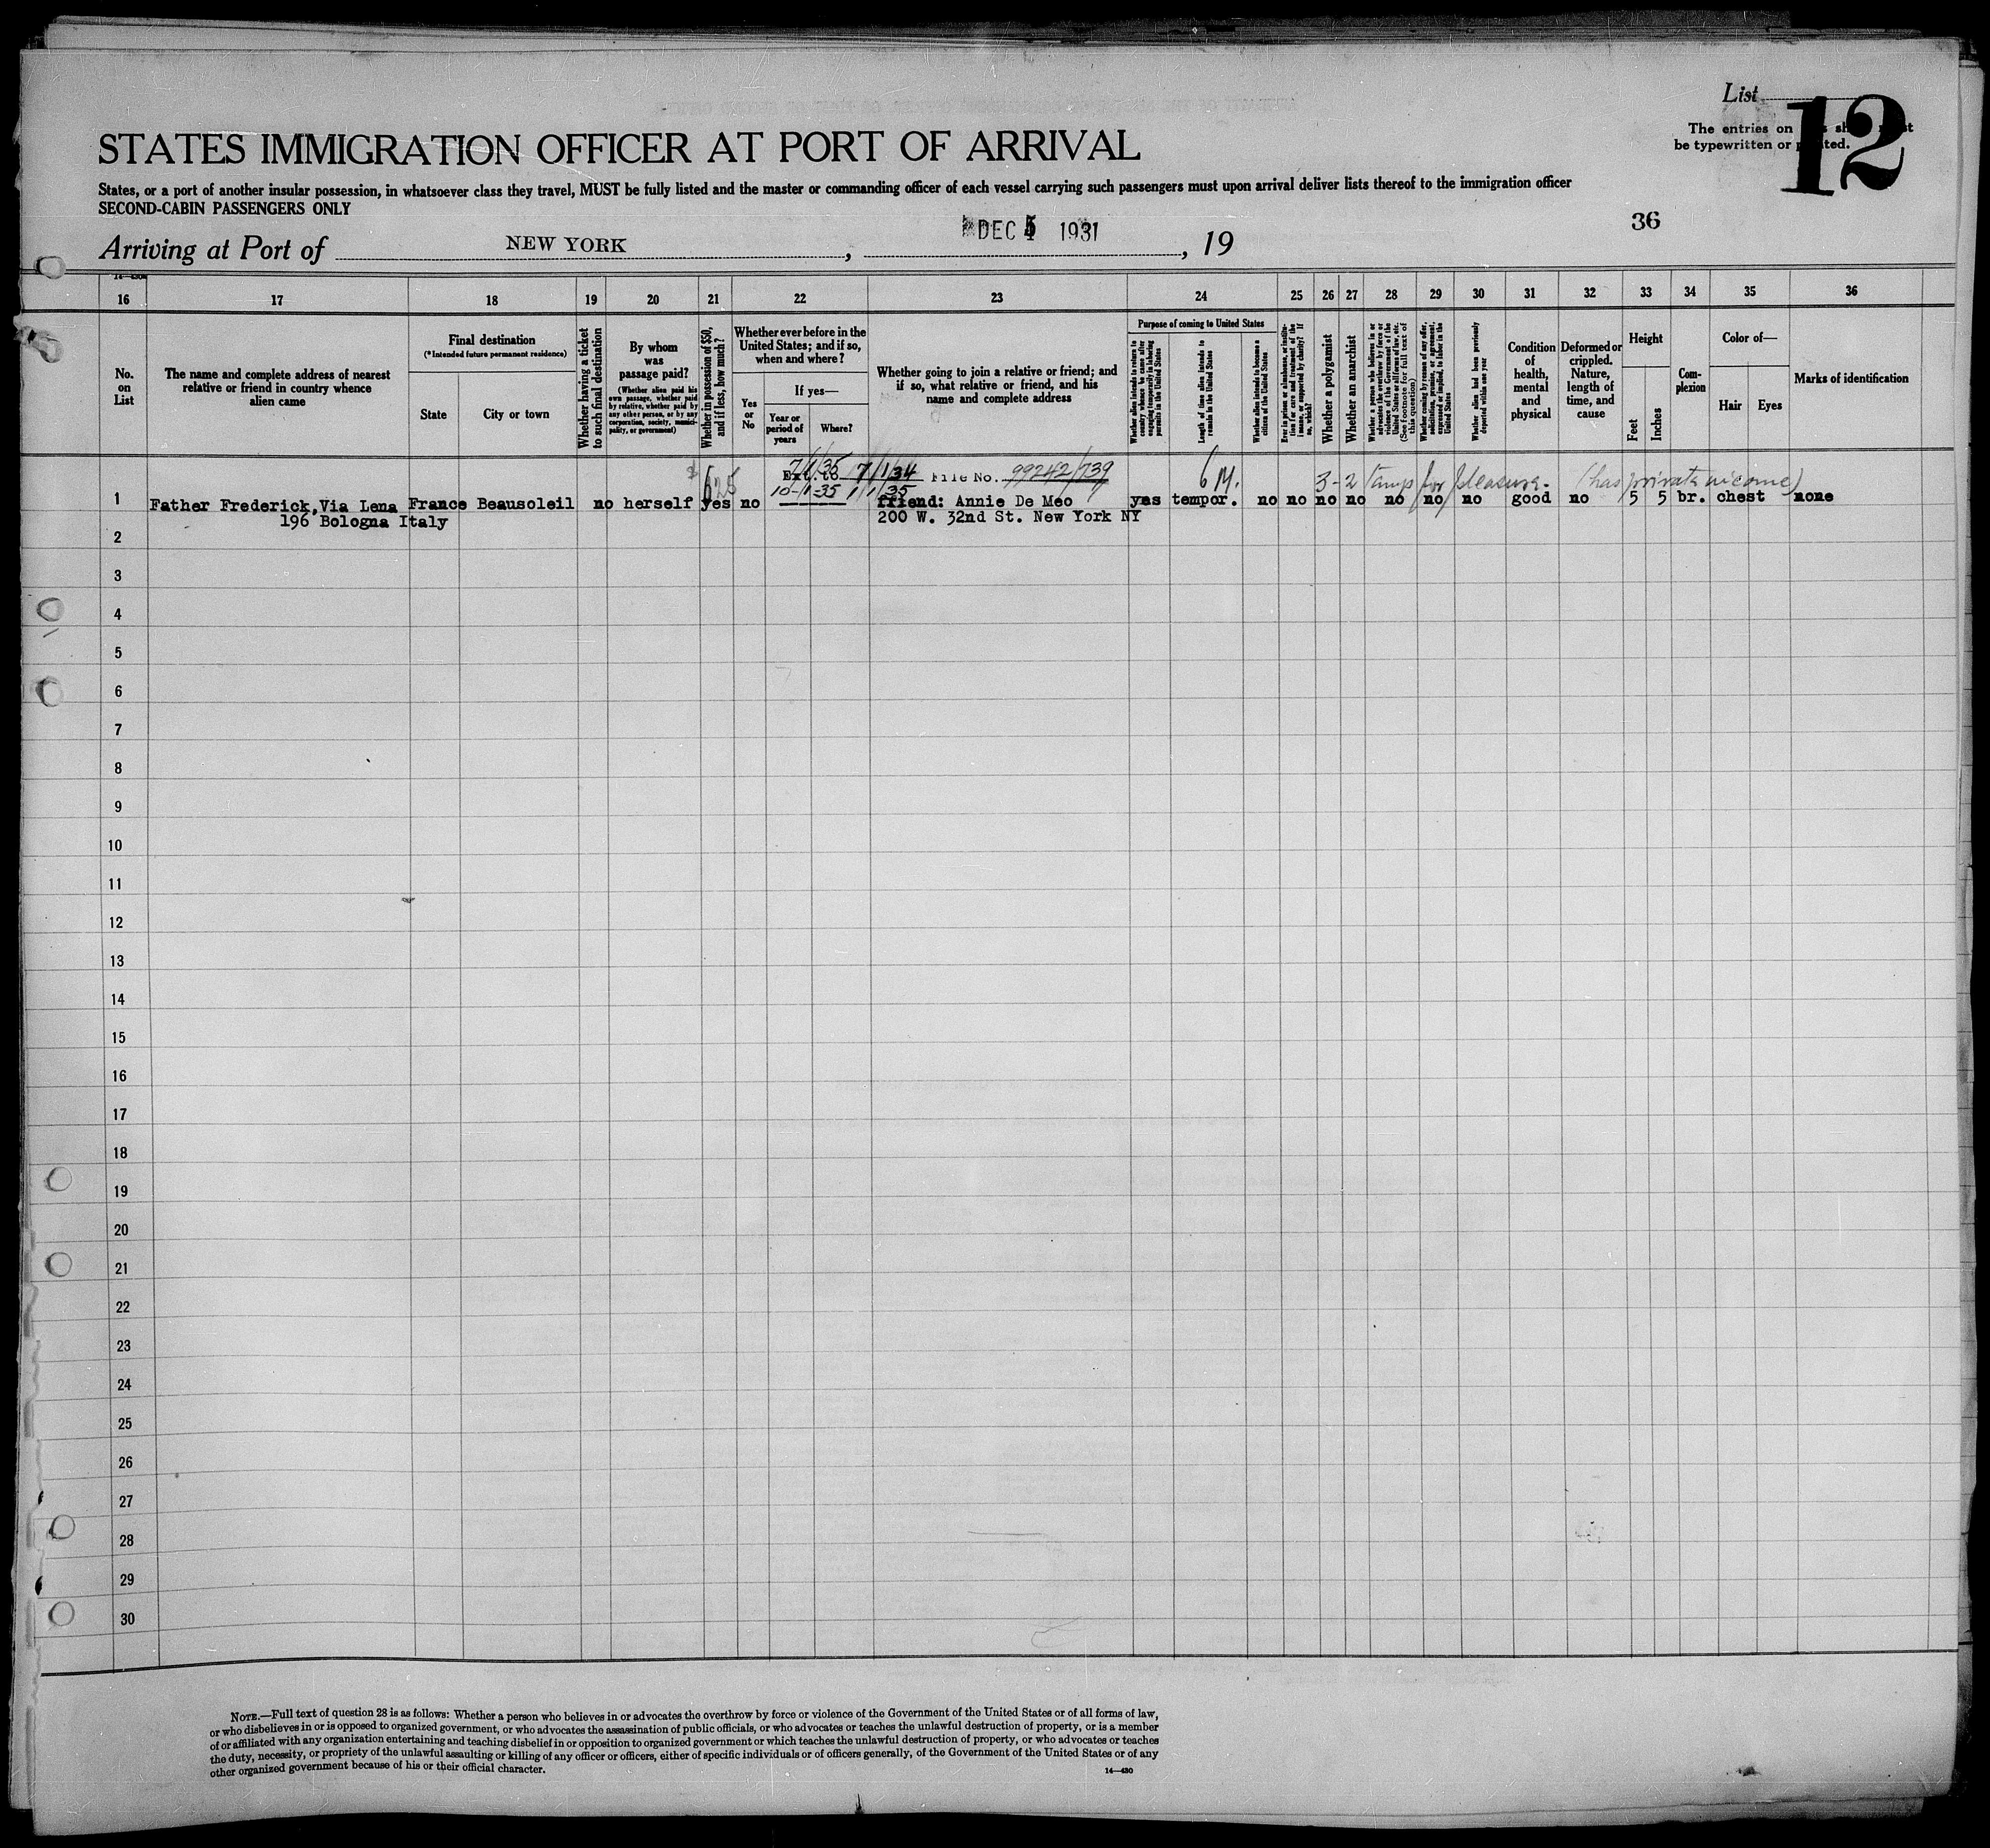 List
12
The entries on
be typewritten or
STATES IMMIGRATION OFFICER AT PORT OF ARRIVAL
States, or a port of another insular possession, in whatsoever class they travel, MUST be fully listed and the master or commanding officer of each vessel carrying such passengers must upon arrival deliver lists thereof to the immigration officer
SECOND-CABIN PASSENGERS ONLY
36
Arriving at Port of NEW YORK , DEC 1931 , 19
16 17 18 19 20 21 22 23 24 25 26 27 28 29 30 31 32 33 34 35 36
No. on List
The name and complete address of nearest relative or friend in country whence alien came
Final destination
(*Intended future permanent residence)
State
City or town
Whether having a ticket to such final destination
By whom was passage paid?
(Whether alien paid his own passage, whether paid by relative, whether paid by any other person, or by any corporation, society, municipality, or government)
Whether in possession of $50, and if less, how much?
Whether ever before in the United States; and if so, when and where?
Yes or No
If yes—
Year or period of years
Where?
Whether going to join a relative or friend; and if so, what relative or friend, and his name and complete address
Purpose of coming to United States
Whether alien intends to return to country whence he came after engaging temporarily in laboring pursuits in the United States
Length of time alien intends to remain in the United States
Whether alien intends to become a citizen of the United States
Ever in prison or almshouse, or institution for care and treatment of the insane, or supported by charity? If so, which?
Whether a polygamist
Whether an anarchist
Whether a person who believes in or advocates the overthrow by force or violence of the Government of the United States or all forms of law, etc. (See footnote for full text of this question)
Whether coming by reason of any offer, solicitation, promise, or agreement, expressed or implied, to labor in the United States
Whether alien had been previously deported within one year
Condition of health, mental and physical
Deformed or crippled. Nature, length of time, and cause
Height
Feet
Inches
Complexion
Color of—
Hair
Eyes
Marks of identification
7/1/35 7/1/34 File No. 99242/739 6 M. 3-2 temp for pleasure. (has private income)
10-1-35 1/1/35
1 Father Frederick,Via Lena France Beausoleil no herself yes no friend: Annie De Meo yes tempor. no no no no no no no good no 5 5 br. chest none
196 Bologna Italy 200 W. 32nd St. New York NY
2
3
4
5
6
7
8
9
10
11
12
13
14
15
16
17
18
19
20
21
22
23
24
25
26
27
28
29
30
NOTE.—Full text of question 28 is as follows: Whether a person who believes in or advocates the overthrow by force or violence of the Government of the United States or of all forms of law,
or who disbelieves in or is opposed to organized government, or who advocates the assassination of public officials, or who advocates or teaches the unlawful destruction of property, or is a member
of or affiliated with any organization entertaining and teaching disbelief in or opposition to organized government or which teaches the unlawful destruction of property, or who advocates or teaches
the duty, necessity, or propriety of the unlawful assaulting or killing of any officer or officers, either of specific individuals or of officers generally, of the Government of the United States or of any
other organized government because of his or their official character.
14—430